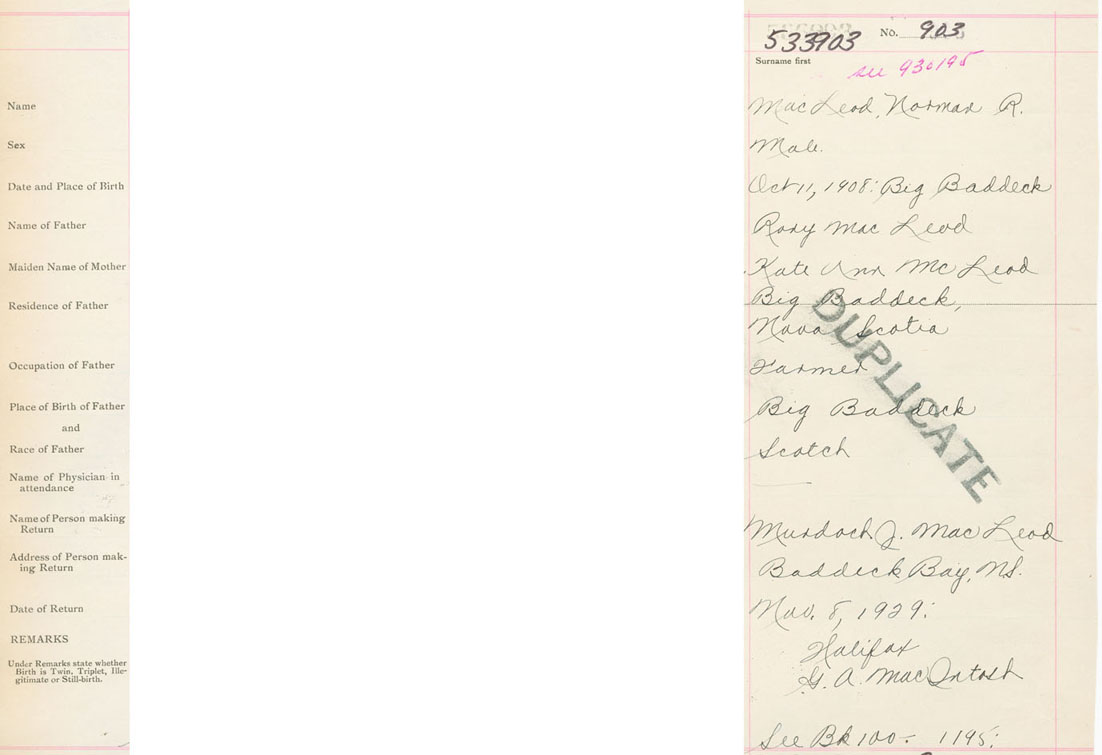 533903 No. 903
Surname first
see 930195
Name MacLeod, Norman R.
Sex Male.
Date and Place of Birth Oct 11, 1908: Big Baddeck
Name of Father Rory Mac Leod
Maiden Name of Mother Kate Ann Mc Leod
Residence of Father Big Baddeck,
Nova Scotia
Occupation of Father Farmer
Place of Birth of Father Big Baddeck
and
Race of Father Scotch
Name of Physician in
attendance
Name of Person making
Return Murdoch J. Mac Leod
Address of Person mak-
ing Return Baddeck Bay, N.S.
Date of Return Nov. 8, 1929:
REMARKS Halifax
Under Remarks state whether
Birth is Twin, Triplet, Ille-
gitimate or Still-birth.
G. A. MacIntosh
See Bk 100- 1195:
DUPLICATE